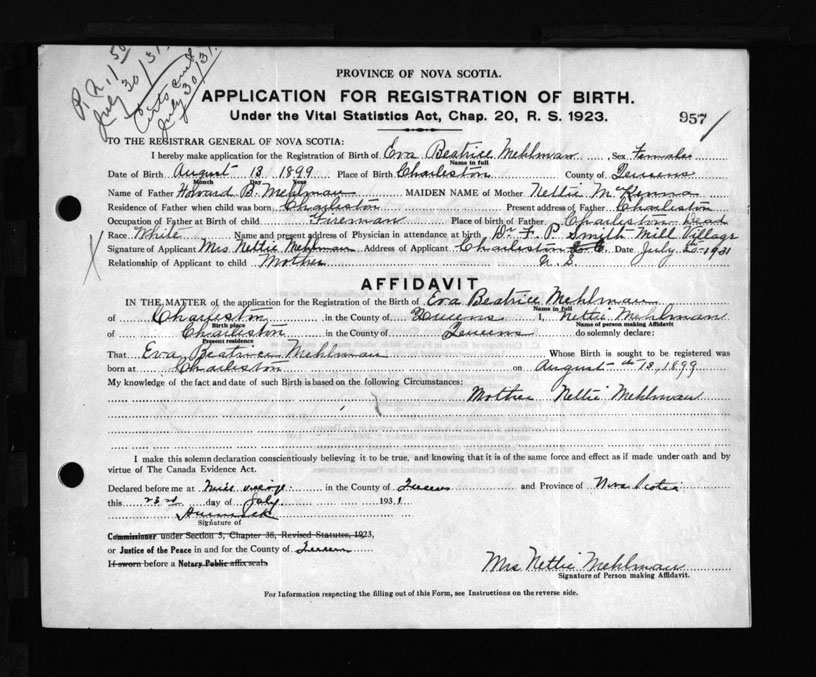 P. N. 1 50
July 30/31.
Certs sent
July 30/31.
PROVINCE OF NOVA SCOTIA.
APPLICATION FOR REGISTRATION OF BIRTH.
Under the Vital Statistics Act, Chap. 20, R. S. 1923.
957
TO THE REGISTRAR GENERAL OF NOVA SCOTIA:
I hereby make application for the Registration of Birth of Eva Beatrice Mehlman Sex Female
Name in full
Date of Birth August 13 1899 Place of Birth Charleston County of Queens
Month Day Year
Name of Father Howard B. Mehlman MAIDEN NAME of Mother Nettie McKenna
Residence of Father when child was born Charleston Present address of Father Charleston
Occupation of Father at Birth of child Fireman Place of birth of Father Charleston Dead
Race White Name and present address of Physician in attendance at birth Dr F. P. Smith Mill Village
Signature of Applicant Mrs Nettie Mehlman Address of Applicant Charleston Q C. Date July 1931
Relationship of Applicant to child Mother N. S.
AFFIDAVIT
IN THE MATTER of the application for the Registration of the Birth of Eva Beatrice Mehlman
Name in full
of Charleston in the County of Queens I, Nettie Mehlman
Birth place Name of person making Affidavit
of Charleston in the County of Queens do solemnly declare:
Present residence
That Eva Beatrice Mehlman Whose Birth is sought to be registered was
born at Charleston on August th 13, 1899
My knowledge of the fact and date of such Birth is based on the following Circumstances:
Mother Nettie Mehlman
I make this solemn declaration conscientiously believing it to be true, and knowing that it is of the same force and effect as if made under oath and by
virtue of The Canada Evidence Act.
Declared before me at Mill Village in the County of Queens and Province of Nova Scotia
this 23rd day of July 1931
Signature of
Commissioner under Section 5, Chapter 38, Revised Statutes, 1923,
or Justice of the Peace in and for the County of Queens
If sworn before a Notary Public affix seal.
Mrs Nettie Mehlman
Signature of Person making Affidavit.
For Information respecting the filling out of this Form, see Instructions on the reverse side.